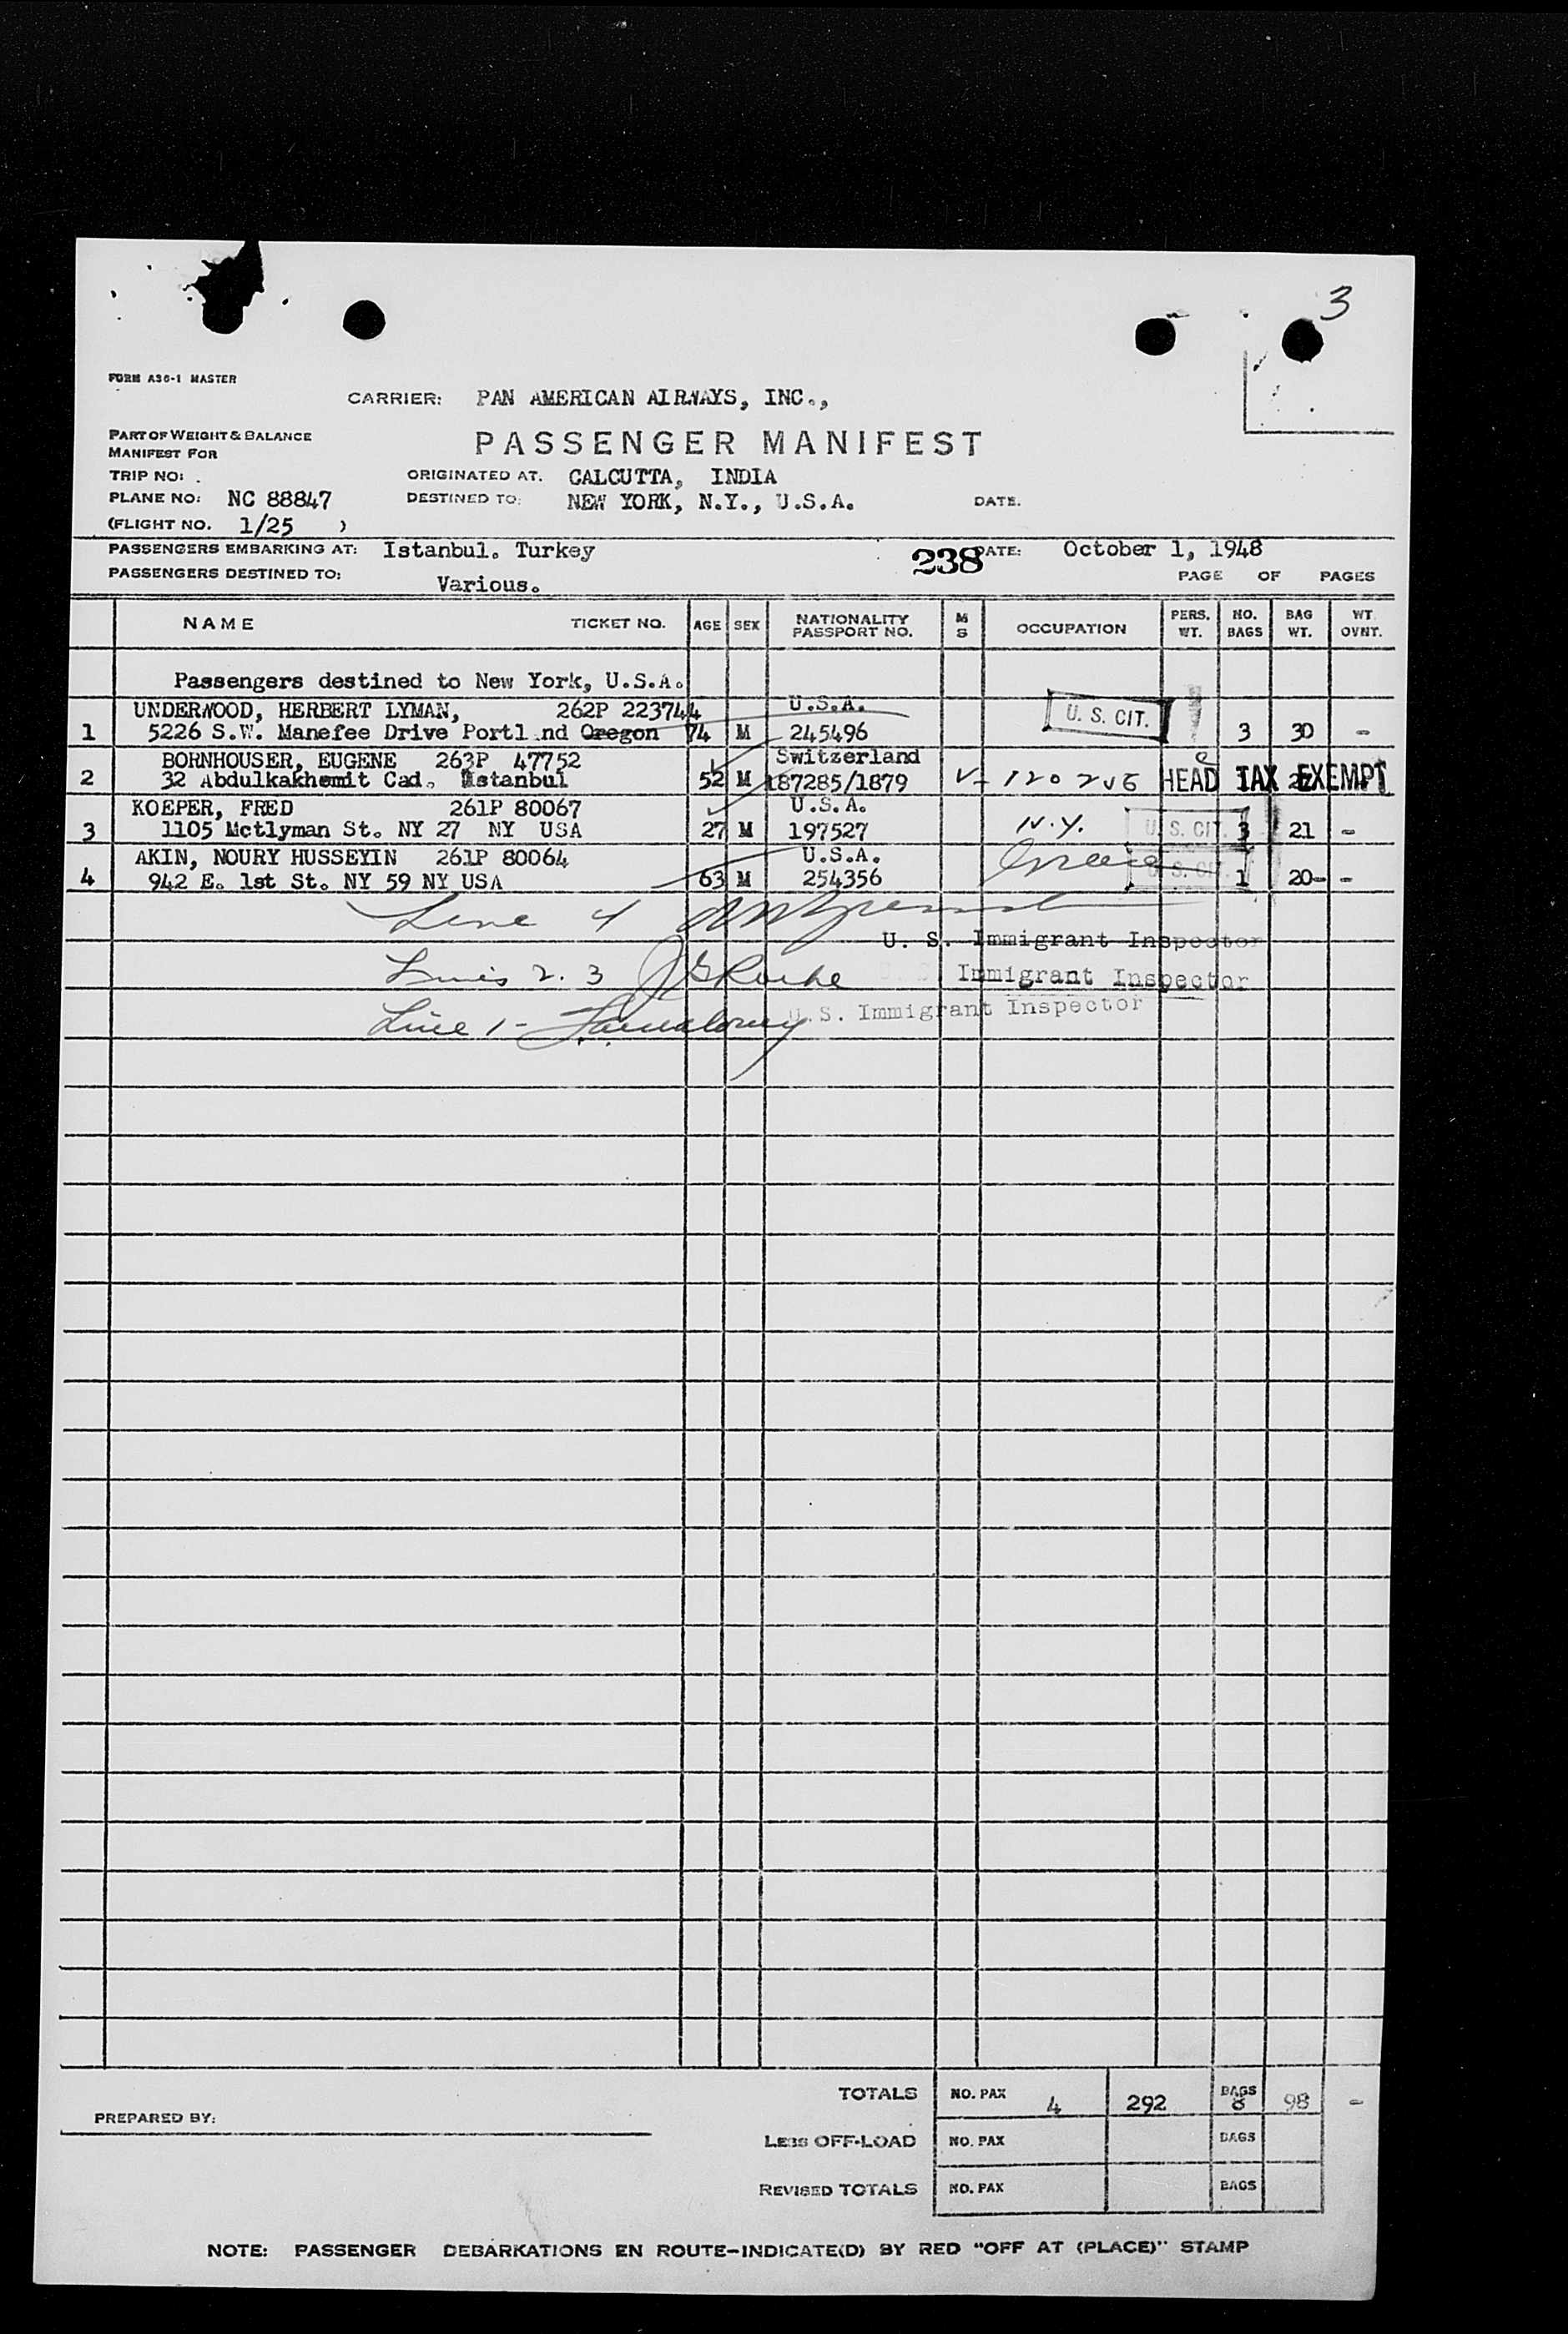 3
FORM A36-1 MASTER
CARRIER: PAN AMERICAN AIRWAYS, INC.,
PART OF WEIGHT & BALANCE
MANIFEST FOR
PASSENGER MANIFEST
TRIP NO: .
ORIGINATED AT. CALCUTTA, INDIA
PLANE NO: NC 88847
DESTINED TO: NEW YORK, N.Y., U.S.A.
DATE.
(FLIGHT NO. 1/25 )
PASSENGERS EMBARKING AT: Istanbul. Turkey
238
DATE: October 1, 1948
PASSENGERS DESTINED TO: Various.
PAGE OF PAGES
NAME TICKET NO. AGE SEX NATIONALITY PASSPORT NO. M S OCCUPATION PERS. WT. NO. BAGS BAG WT. WT. OVNT.
Passengers destined to New York, U.S.A.
UNDERWOOD, HERBERT LYMAN, 262P 223744 U.S.A. U. S. CIT.
1 5226 S.W. Manefee Drive Portl nd Oregon 74 M 245496 3 30 -
BORNHOUSER, EUGENE 263P 47752 Switzerland
2 32 Abdulkakhemit Cad. Istanbul 52 M 187285/1879 V- HEAD TAX EXEMPT
KOEPER, FRED 261P 80067 U.S.A.
3 1105 Mctlyman St. NY 27 NY USA 27 M 197527 N.Y. U. S. CIT. 3 21 -
AKIN, NOURY HUSSEYIN 261P 80064 U.S.A. Greece
4 942 E. 1st St. NY 59 NY USA 63 M 254356 U. S. CIT. 1 20- -
Line 4
U. S. Immigrant Inspector
Lines 2. 3 J G Roche
Immigrant Inspector
Line 1-
U.S. Immigrant Inspector
TOTALS NO. PAX 4 292 BAGS 8 98 -
PREPARED BY:
LESS OFF-LOAD NO. PAX BAGS
REVISED TOTALS NO. PAX BAGS
NOTE: PASSENGER DEBARKATIONS EN ROUTE-INDICATE(D) BY RED "OFF AT (PLACE)" STAMP